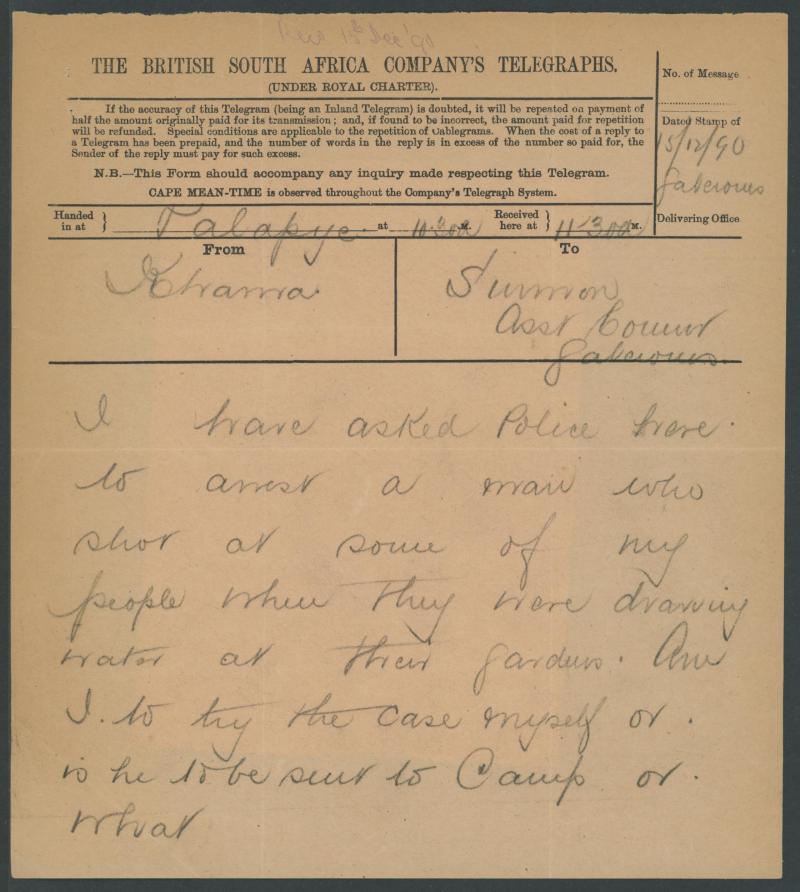 Recd 15th Dec '90
THE BRITISH SOUTH AFRICA COMPANY'S TELEGRAPHS.
(UNDER ROYAL CHARTER).
If the accuracy of this Telegram (being an Inland Telegram) is doubted, it will be repeated on payment of
half the amount originally paid for its transmission; and, if found to be incorrect, the amount paid for repetition
will be refunded. Special conditions are applicable to the repetition of Cablegrams. When the cost of a reply to
a Telegram has been prepaid, and the number of words in the reply is in excess of the number so paid for, the
Sender of the reply must pay for such excess.
N.B.—This Form should accompany any inquiry made respecting this Telegram.
CAPE MEAN-TIME is observed throughout the Company's Telegraph System.
No. of Message
Dated Stamp of
15/12/90
Gaberones
Delivering Office
Handed in at } Palapye at 10.30a M. Received here at } 11-30a M.
From
To
Khama
Surmon
Asst Commr
Gaberones.
I have asked Police here.
to arrest a man who
shot at some of my
people when they were drawing
water at their gardens. Am
I. to try the case myself or.
is he to be sent to Camp or.
what